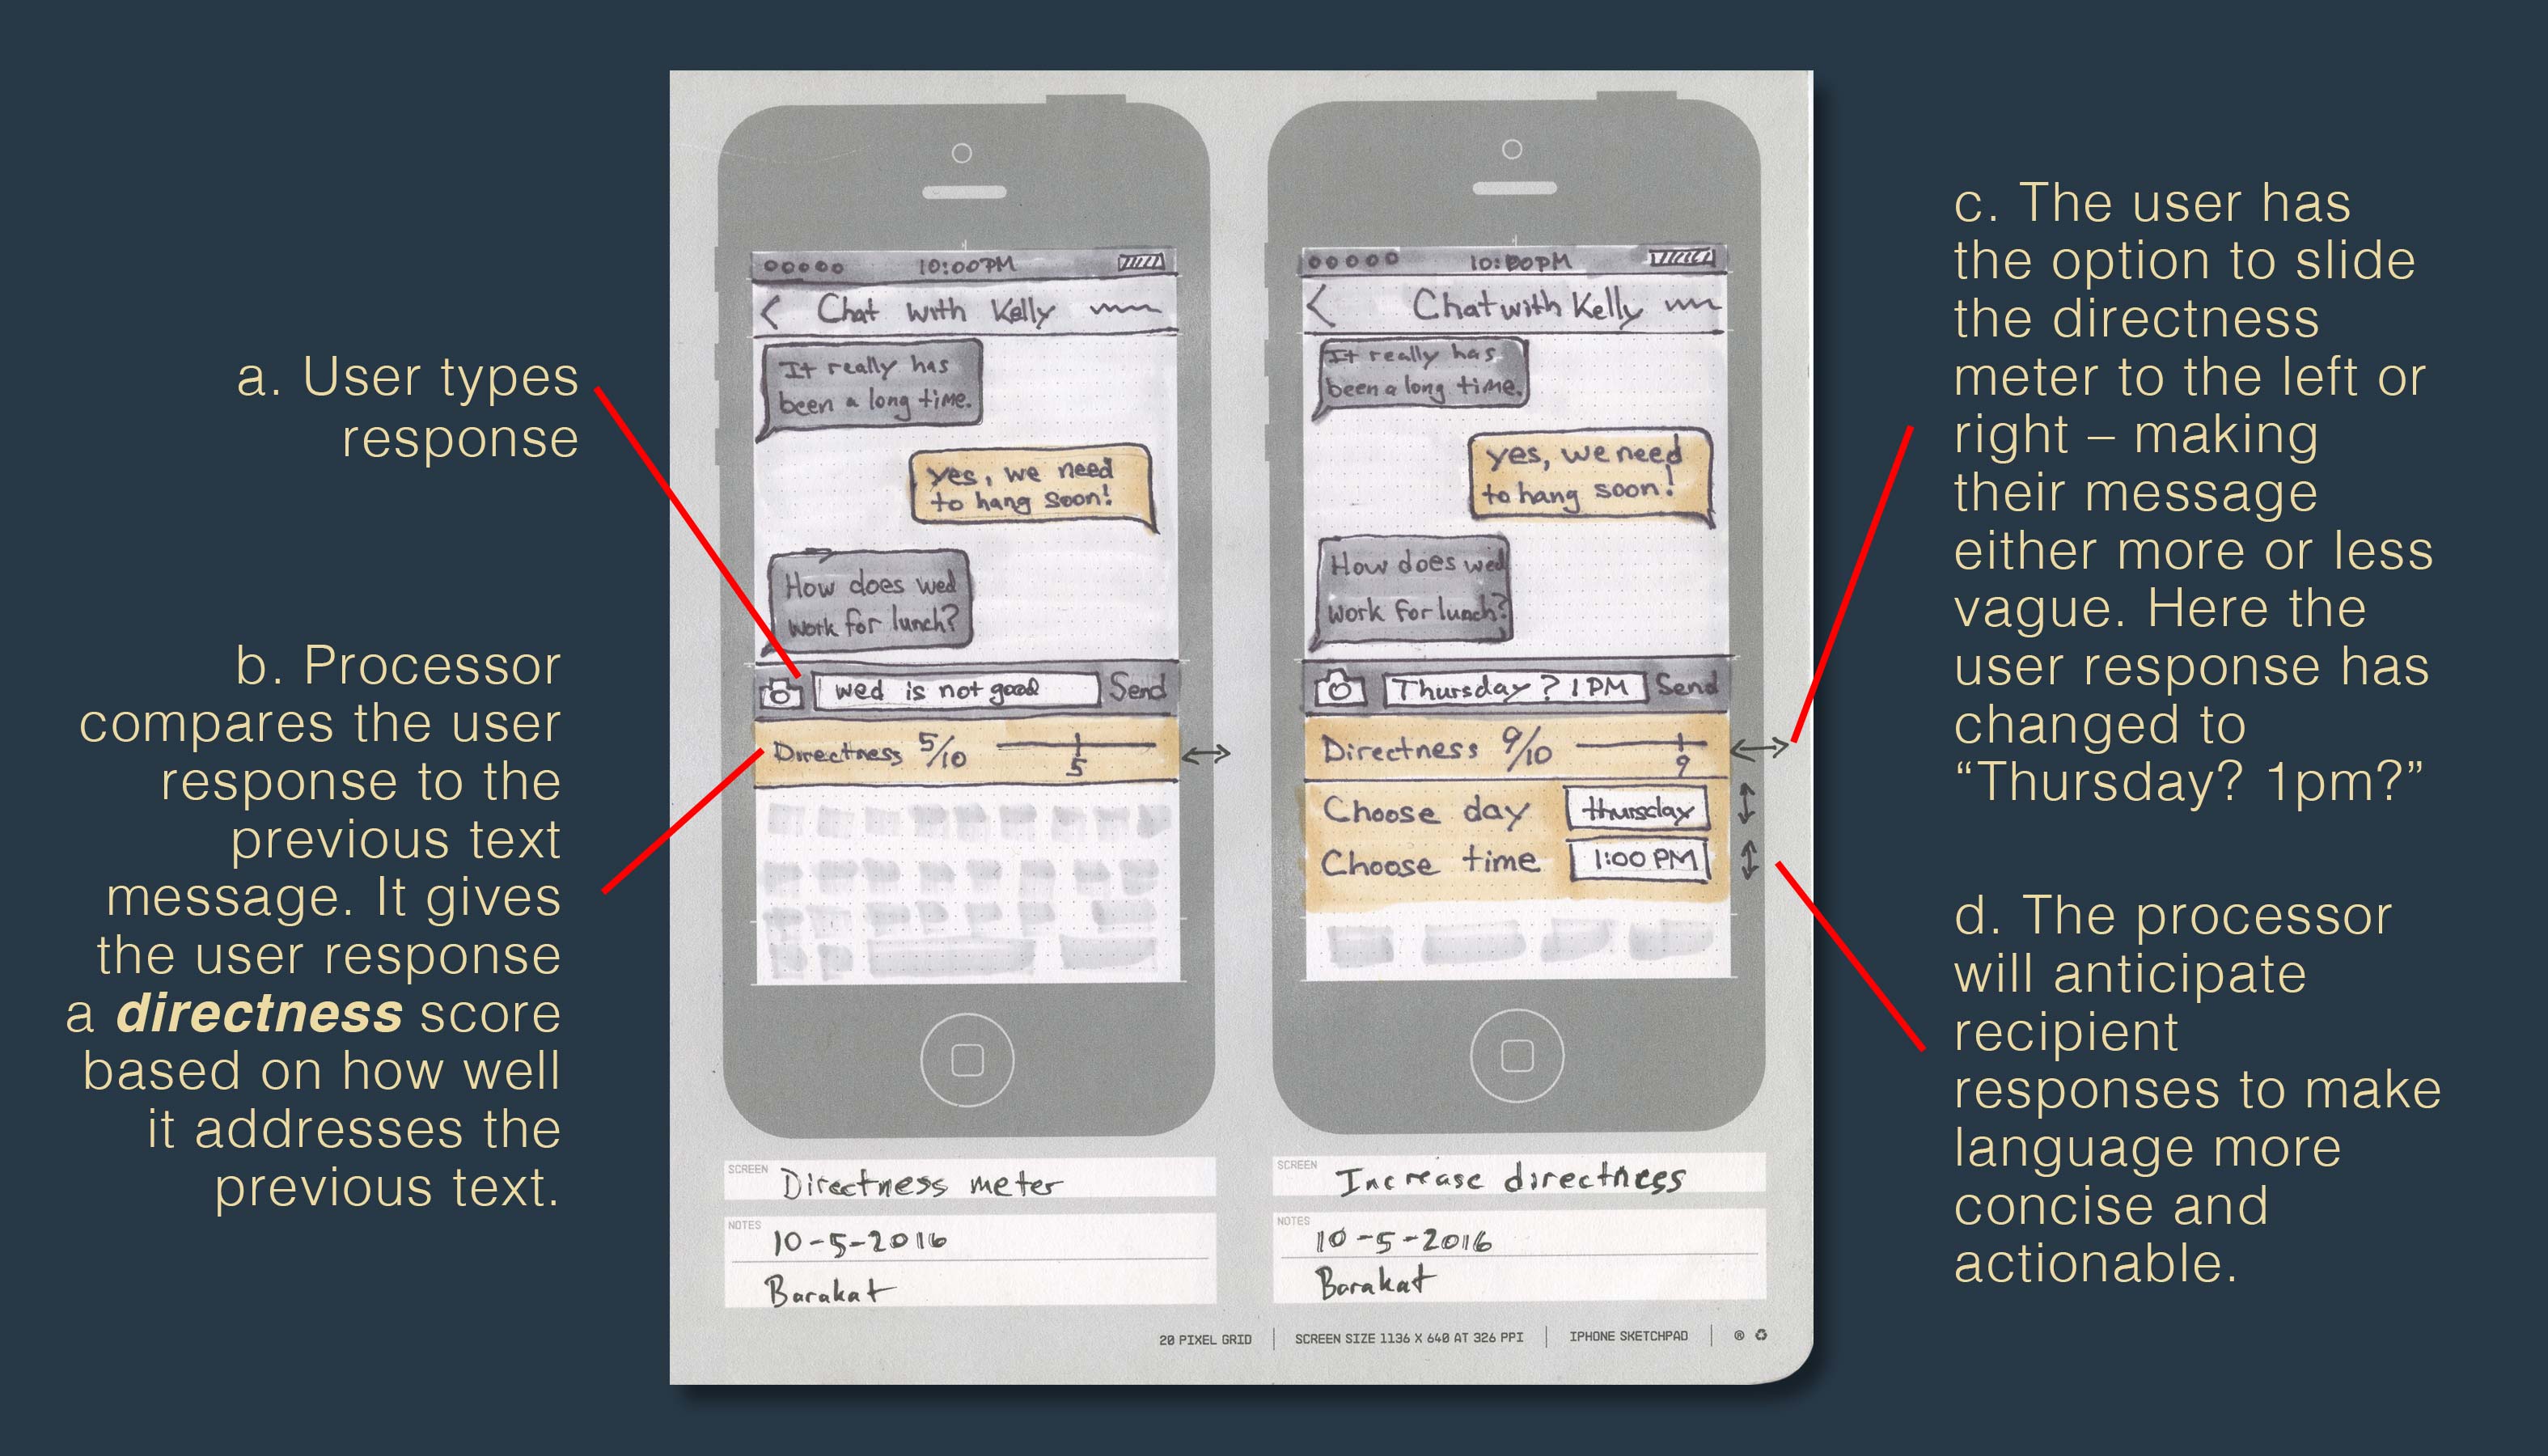 a. User types
response
b. Processor
compares the user
response to the
previous text
message. It gives
the user response
a directness score
based on how well
it addresses the
previous text.
10:00PM
< Chat with Kelly
It really has
been a long time.
yes, we need
to hang soon!
How does wed
work for lunch?
wed is not good Send
Directness 5/10
5
SCREEN Directness meter
NOTES
10-5-2016
Barakat
10:00PM
< Chat with Kelly
It really has
been a long time.
yes, we need
to hang soon!
How does wed
work for lunch?
Thursday? 1PM Send
Directness 9/10
9
Choose day thursday
Choose time 1:00 PM
SCREEN Increase directness
NOTES
10-5-2016
Barakat
20 PIXEL GRID | SCREEN SIZE 1136 X 640 AT 326 PPI | IPHONE SKETCHPAD | ®
c. The user has
the option to slide
the directness
meter to the left or
right – making
their message
either more or less
vague. Here the
user response has
changed to
“Thursday? 1pm?”
d. The processor
will anticipate
recipient
responses to make
language more
concise and
actionable.